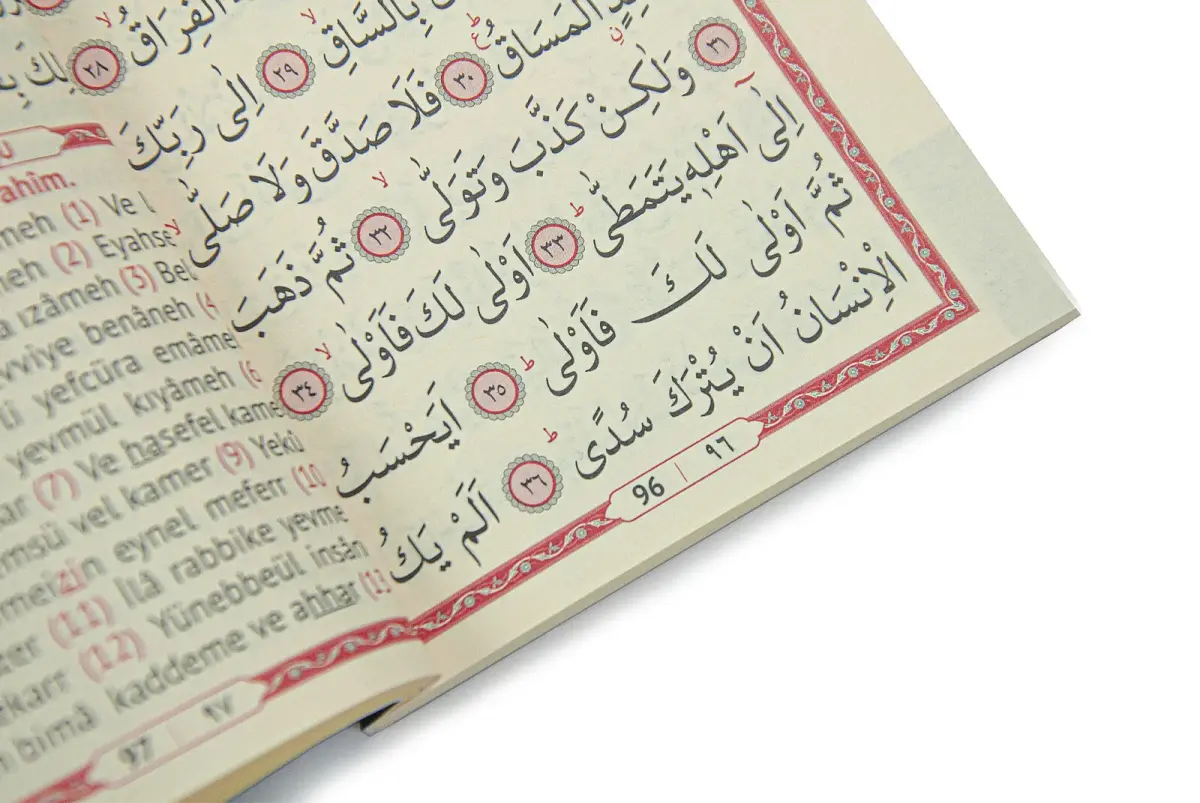 الْفِرَاقُ ٢٨
بِالسَّاقِ ٢٩ اِلٰى رَبِّكَ
الْمَسَاقُ ٣٠ فَلَا صَدَّقَ وَلَا صَلّٰى
٣١ وَلٰكِنْ كَذَّبَ وَتَوَلّٰى ٣٢ ثُمَّ ذَهَبَ
اِلٰٓى اَهْلِهٖ يَتَمَطّٰى ٣٣ اَوْلٰى لَكَ فَاَوْلٰى ٣٤
ثُمَّ اَوْلٰى لَكَ فَاَوْلٰى ٣٥ اَيَحْسَبُ
الْاِنْسَانُ اَنْ يُتْرَكَ سُدًى ٣٦ اَلَمْ يَكُ
96 | ٩٦
ahîm.
meh (1) Ve l
meh (2) Eyahse
a ızâmeh (3) Bel
evviye benâneh (4
yefcüra emâme
yevmül kıyâmeh (6
ar (7) Ve hasefel kame
emsü vel kamer (9) Yekû
meizin eynel meferr (10
zer (11) İlâ rabbike yevme
ekarr (12) Yünebbeül insân
bimâ kaddeme ve ahhar (13
97 | ٩٧